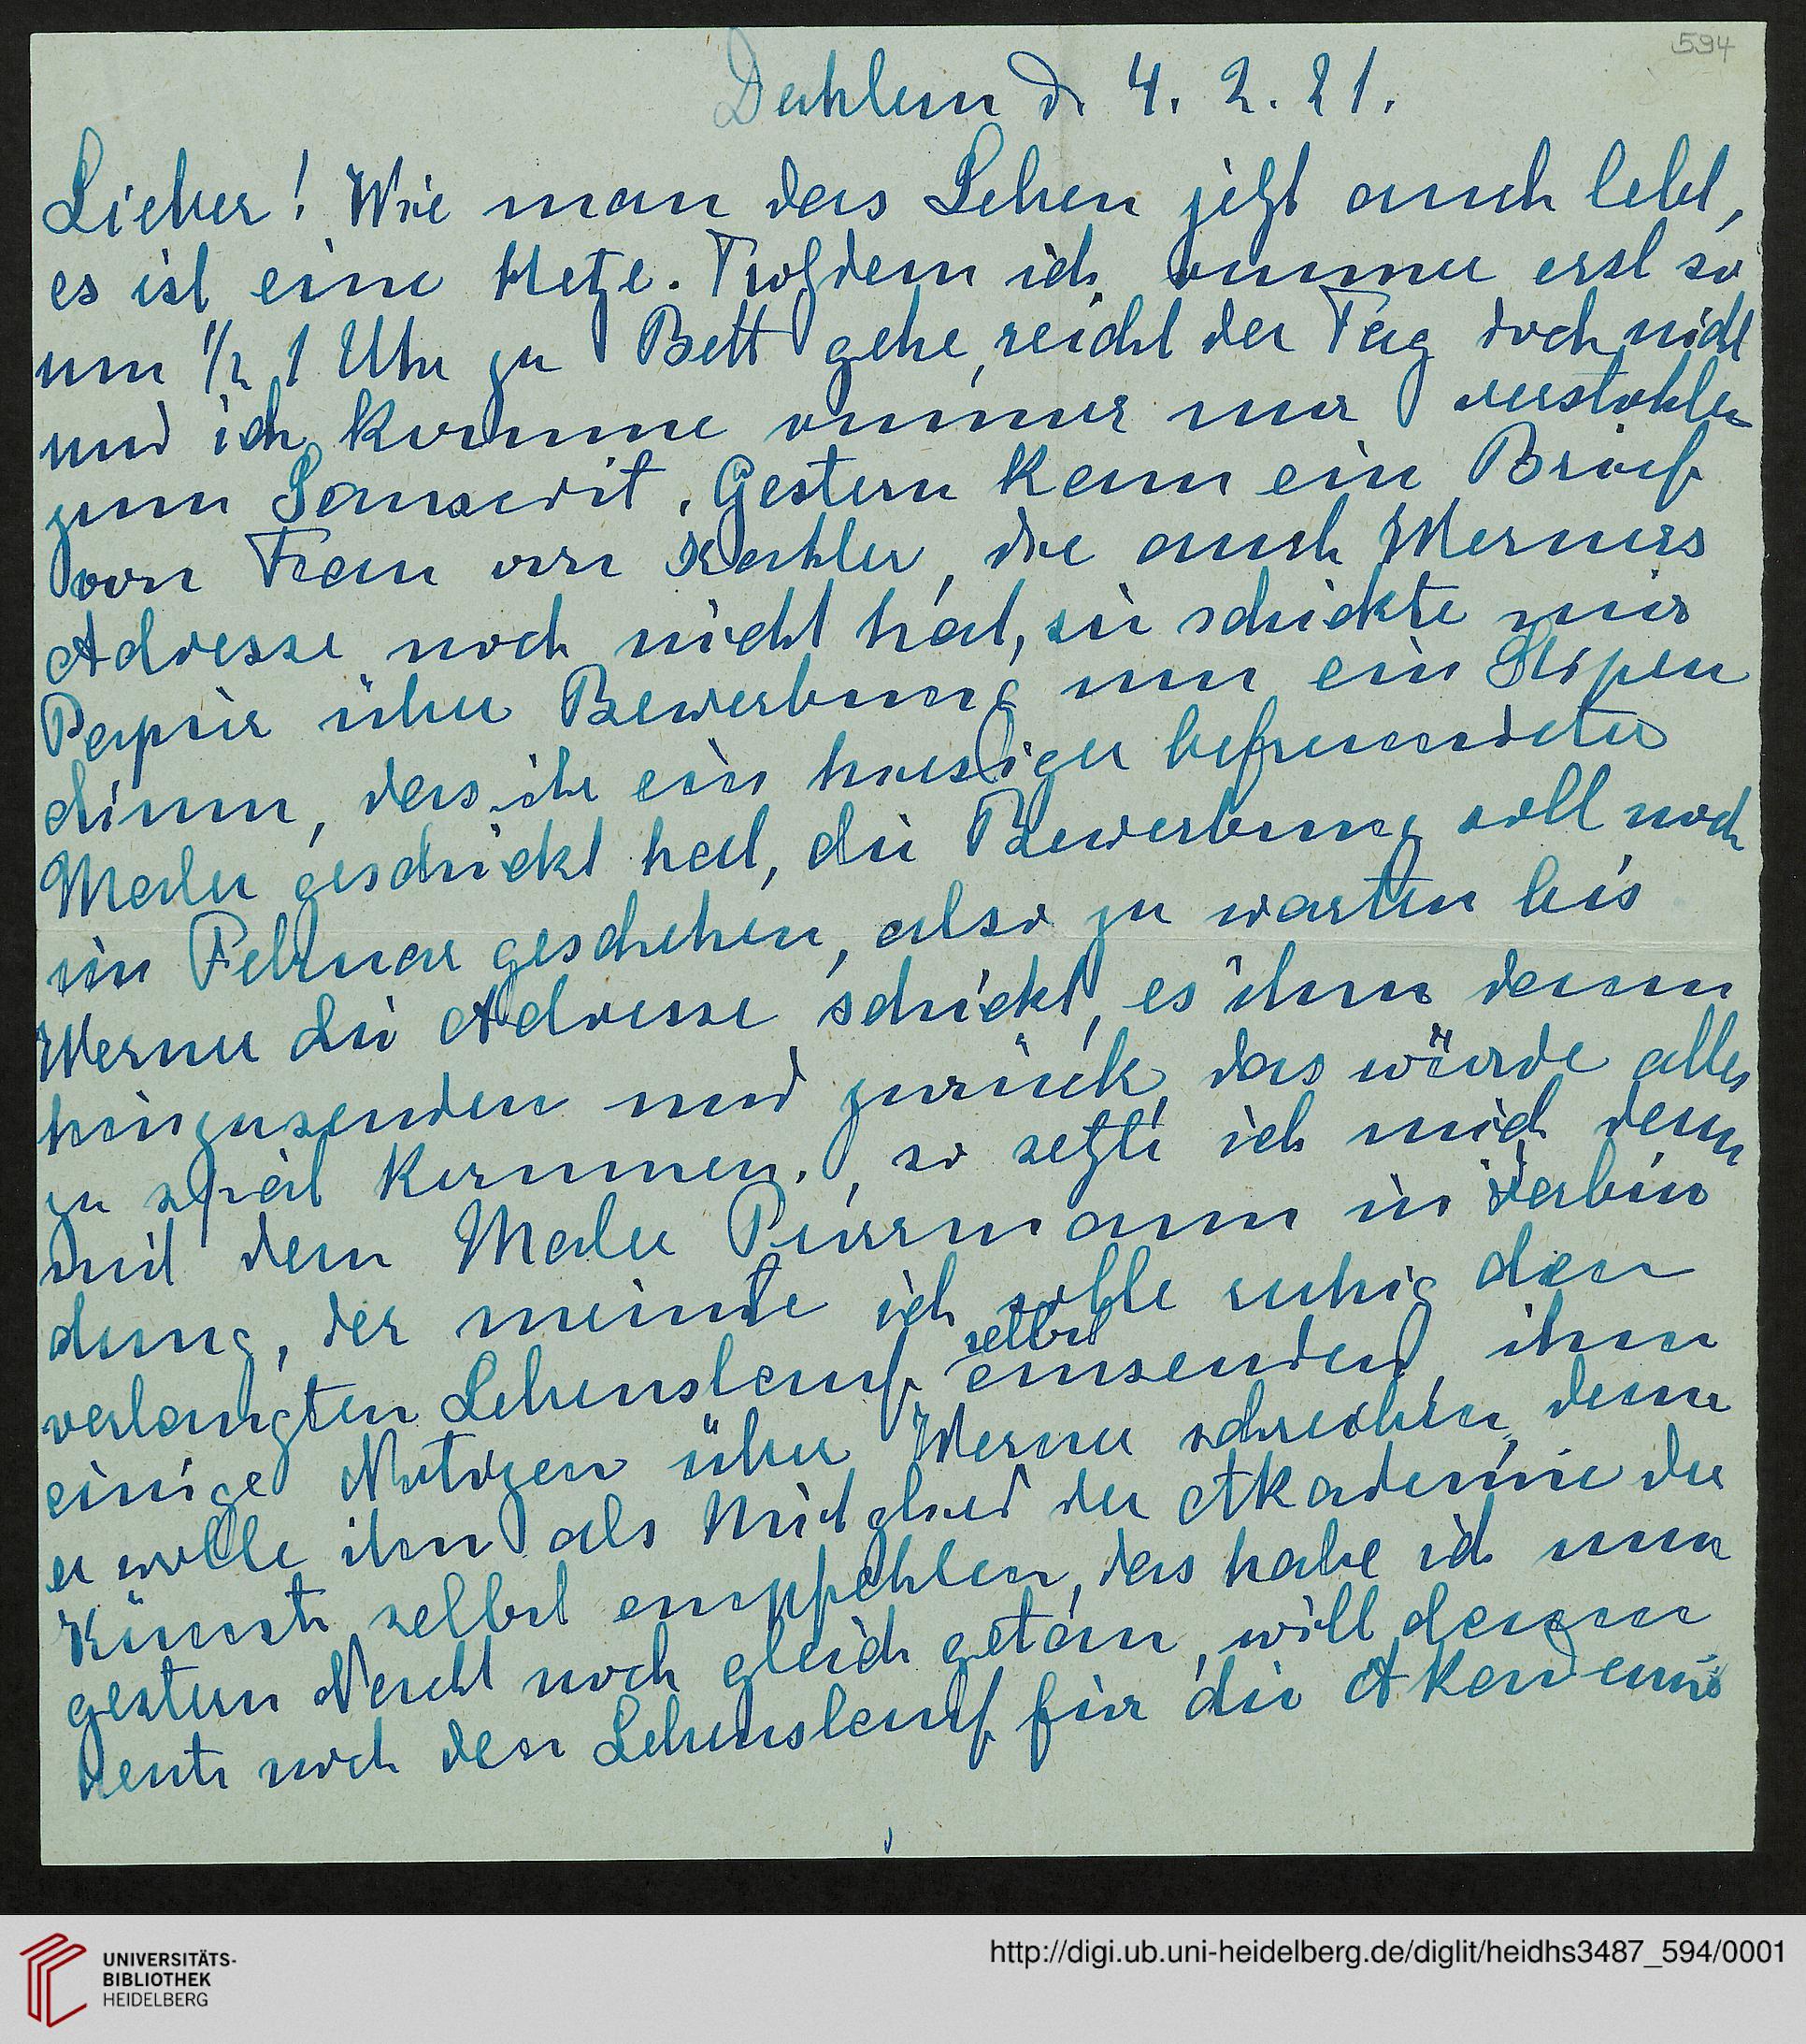 594
Dahlem d. 4. 2. 21.
Lieber! Wie man das Leben jetzt auch lebt,
es ist eine Hetze. Trotzdem ich immer erst so
um 1/2 1 Uhr zu Bett gehe, reicht der Tag doch nicht
und ich komme immer nur verstohlen
zum Sanscrit. Gestern kam ein Brief
von Frau von Kahler, die auch Werners
Adresse noch nicht hat, sie schickte mir
Papier über Bewerbung um ein Stipen
dium, das ihr ein hiesiger befreundeter
Maler geschickt hat, die Bewerbung soll noch
im Februar geschehen, also zu warten bis
Werner die Adresse schickt, es ihm dann
hinzusenden und zurück, das würde alles
zu spät kommen, so setzte ich mich denn
mit dem Maler Purrmann in Verbin
dung, der meinte ich solle ruhig den
verlangten Lebenslauf selbst einsenden, ihm
einige Notizen über Werner schreiben, denn
er wolle ihn als Mitglied der Akademie der
Künste selbst empfehlen, das habe ich nun
gestern Nacht noch gleich getan, will dann
heute noch den Lebenslauf für die Akademie
UNIVERSITÄTS-
BIBLIOTHEK
HEIDELBERG
http://digi.ub.uni-heidelberg.de/diglit/heidhs3487_594/0001